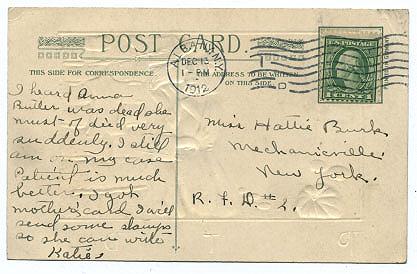 POST CARD.
ALBANY, N.Y.
DEC 13
1 - PM
1912
U.S. POSTAGE
1 CENT 1
THIS SIDE FOR CORRESPONDENCE
THE ADDRESS TO BE WRITTEN
ON THIS SIDE.
I heard Anna
Butler was dead she
must of died very
suddenly. I still
am on my case
Patient is much
better. I got
mothers card I will
send some stamps
so she can write
Katie.
Miss Hattie Burk
Mechanicville
New York.
R.F.D.